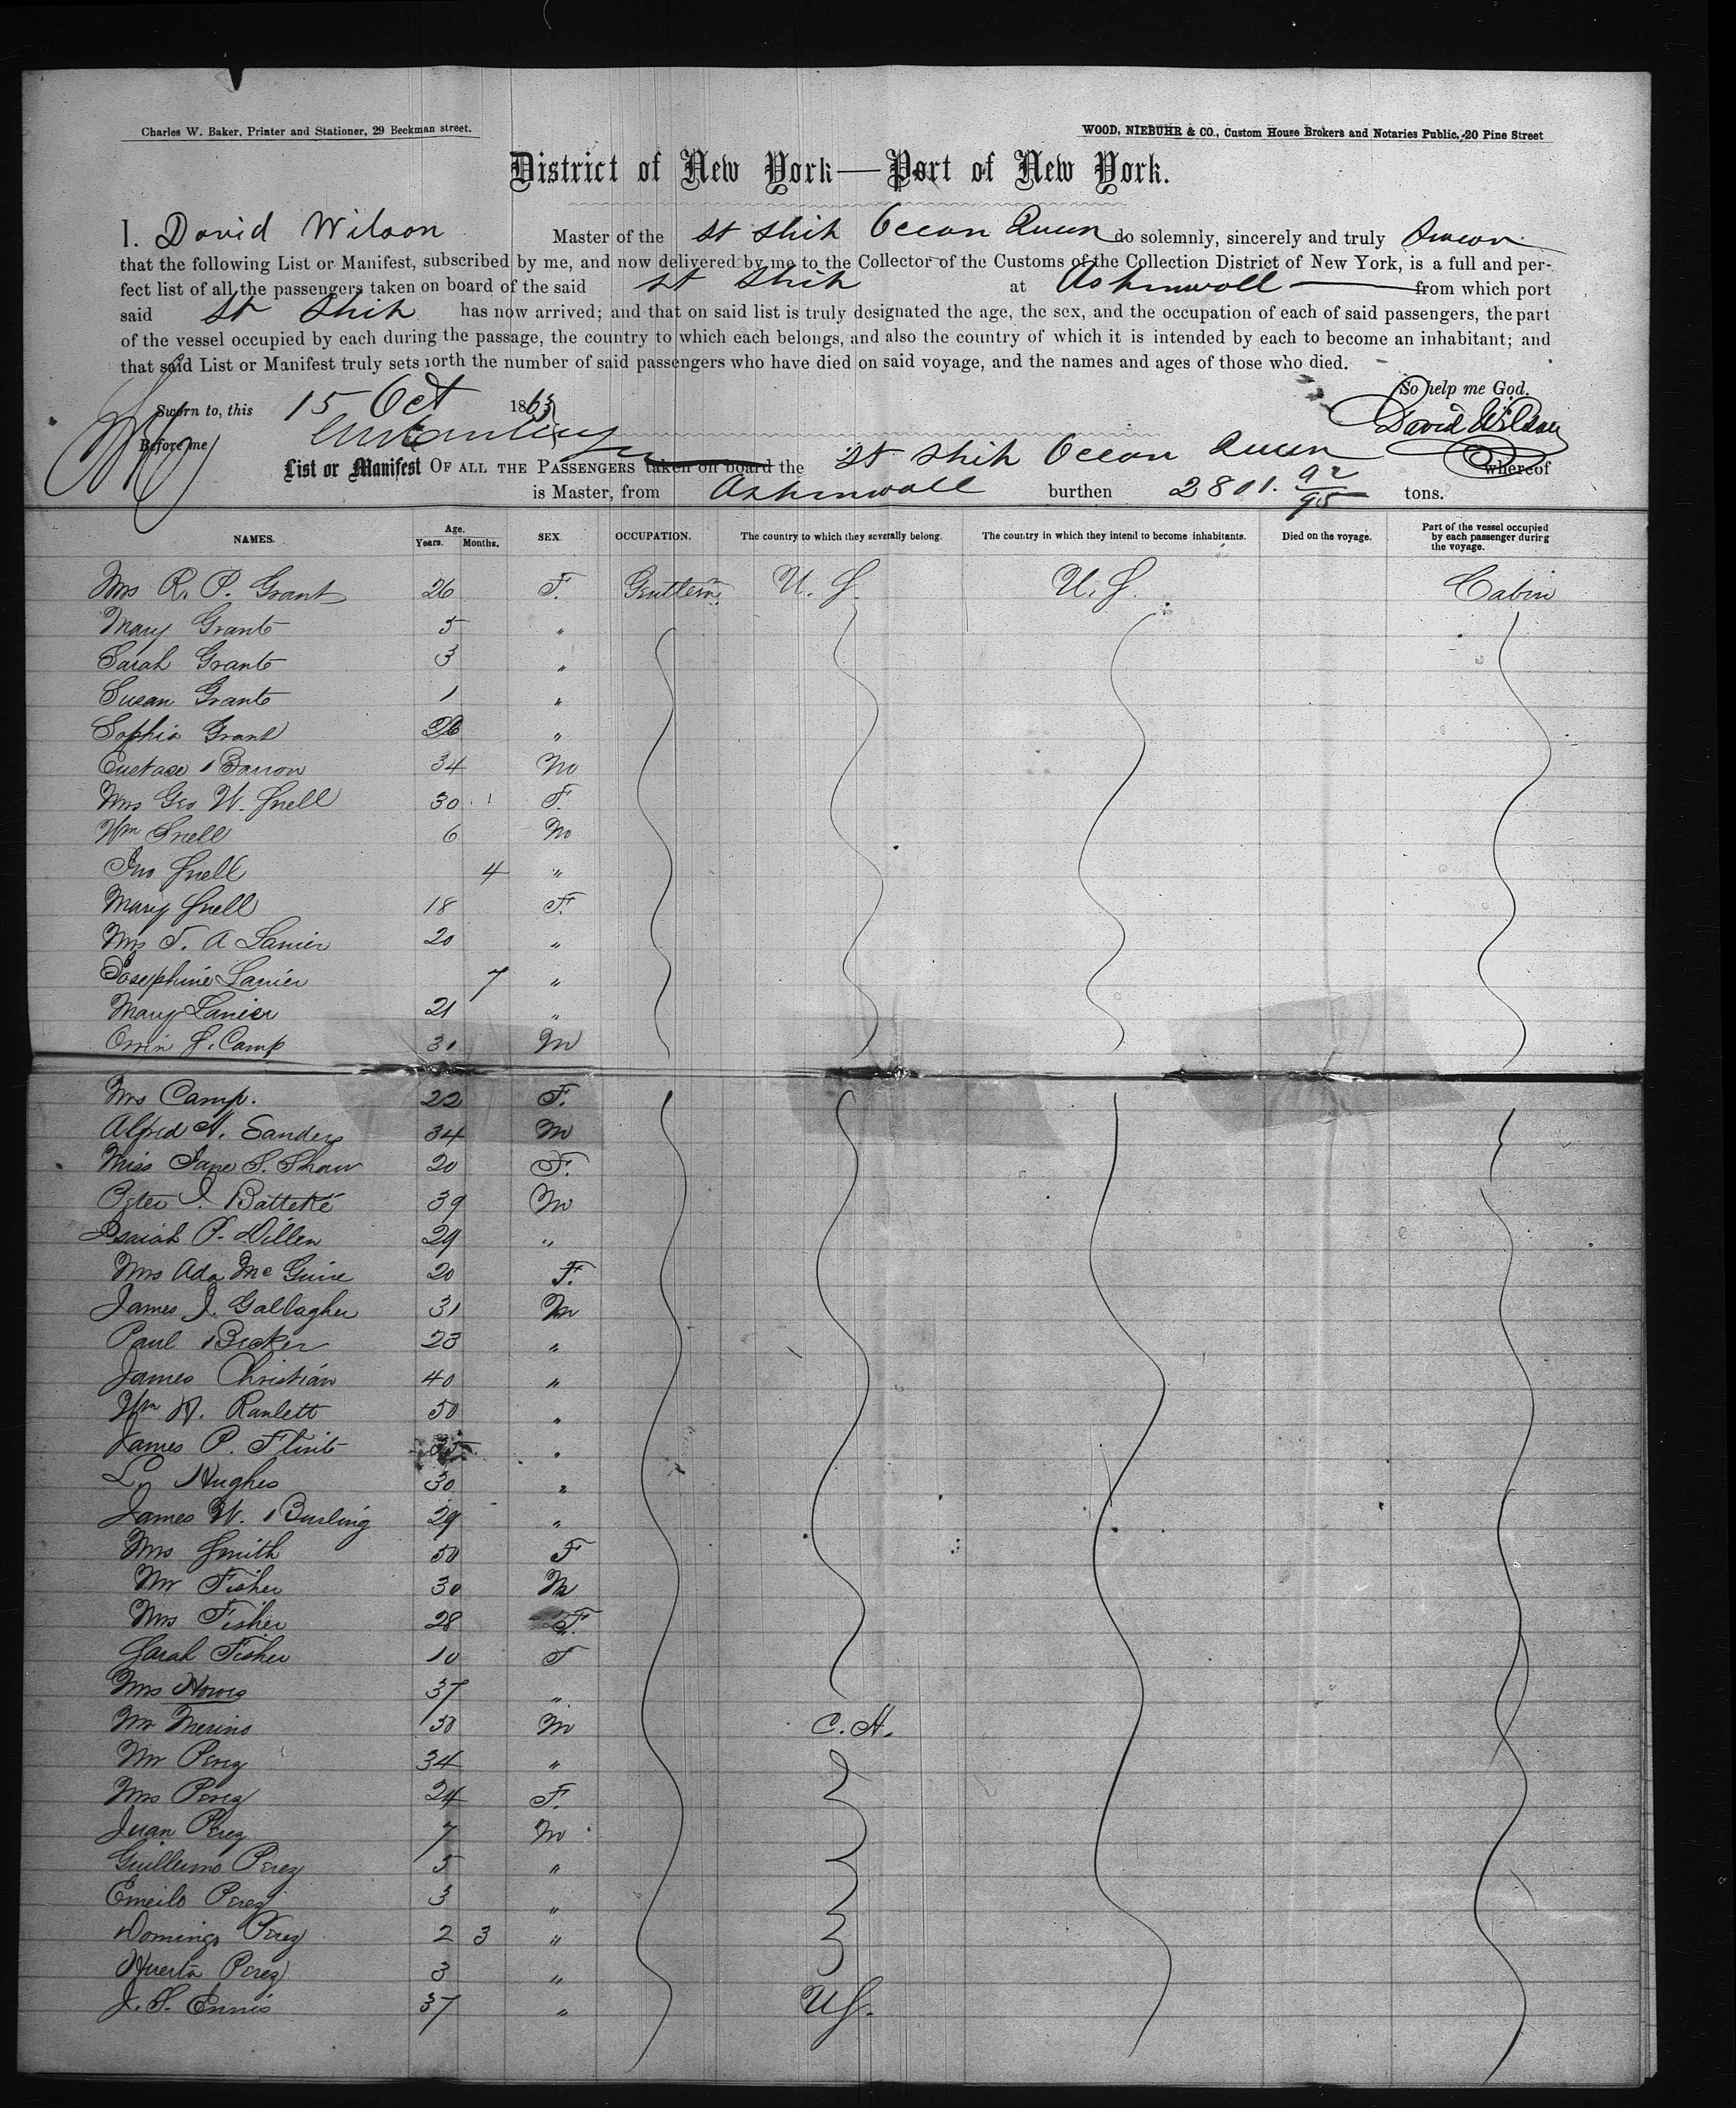 Charles W. Baker, Printer and Stationer, 29 Beekman street.
WOOD, NIEBUHR & CO., Custom House Brokers and Notaries Public, 20 Pine Street
District of New York—Port of New York.
I. David Wilson Master of the St Ship Ocean Queen do solemnly, sincerely and truly Swear
that the following List or Manifest, subscribed by me, and now delivered by me to the Collector of the Customs of the Collection District of New York, is a full and per-
fect list of all the passengers taken on board of the said St Ship at Ashinwall from which port
said St Ship has now arrived; and that on said list is truly designated the age, the sex, and the occupation of each of said passengers, the part
of the vessel occupied by each during the passage, the country to which each belongs, and also the country of which it is intended by each to become an inhabitant; and
that said List or Manifest truly sets forth the number of said passengers who have died on said voyage, and the names and ages of those who died.
So help me God.
Sworn to, this 15 Oct 1863
David Wilson
Before me
List or Manifest OF ALL THE PASSENGERS taken on board the St Ship Ocean Queen whereof
is Master, from Ashinwall burthen 2801. 92/95 tons.
NAMES. Age. Years. Months. SEX. OCCUPATION. The country to which they severally belong. The country in which they intend to become inhabitants. Died on the voyage. Part of the vessel occupied by each passenger during the voyage.
Mrs R. P. Grant 26 F. Gentlem. U.S. U.S. Cabin
Mary Grant 5 "
Sarah Grant 3 "
Susan Grant 1 "
Sophia Grant "
Eustace Barron 34 M
Mrs Geo W. Snell 30 F.
Wm Snell 6 M
Jno Snell 4 "
Mary Snell 18 F.
Mrs T. A Lanier 20 "
Josephine Lanier 7 "
Mary Lanier 21 "
Orrin S. Camp 31 M
Mrs Camp. 22 F.
Alfred H. Sanders 34 M
Miss Jane S. Shaw 20 F.
Peter J. Batteké 39 M
Isaiah P. Dillen 29 "
Mrs Ada McGuire 20 F.
James J. Gallagher 31 M
Paul Becker 23 "
James Christian 40 "
Wm H. Ranlett 50 "
James P. Flint 35 "
L. Hughes 30 "
James W. Burling 29 "
Mrs Smith 50 F
Mr Fisher 30 M
Mrs Fisher 28 F.
Sarah Fisher 10 F
Mrs Howes 37 "
Mr Merino 50 M C.A.
Mr Perez 34 "
Mrs Perez 24 F.
Juan Perez 7 M
Guillermo Perez 5 "
Emeilo Perez 3 "
Domingo Perez 2 3 "
Huerta Perez 3 "
J. S. Ennis 37 " US.